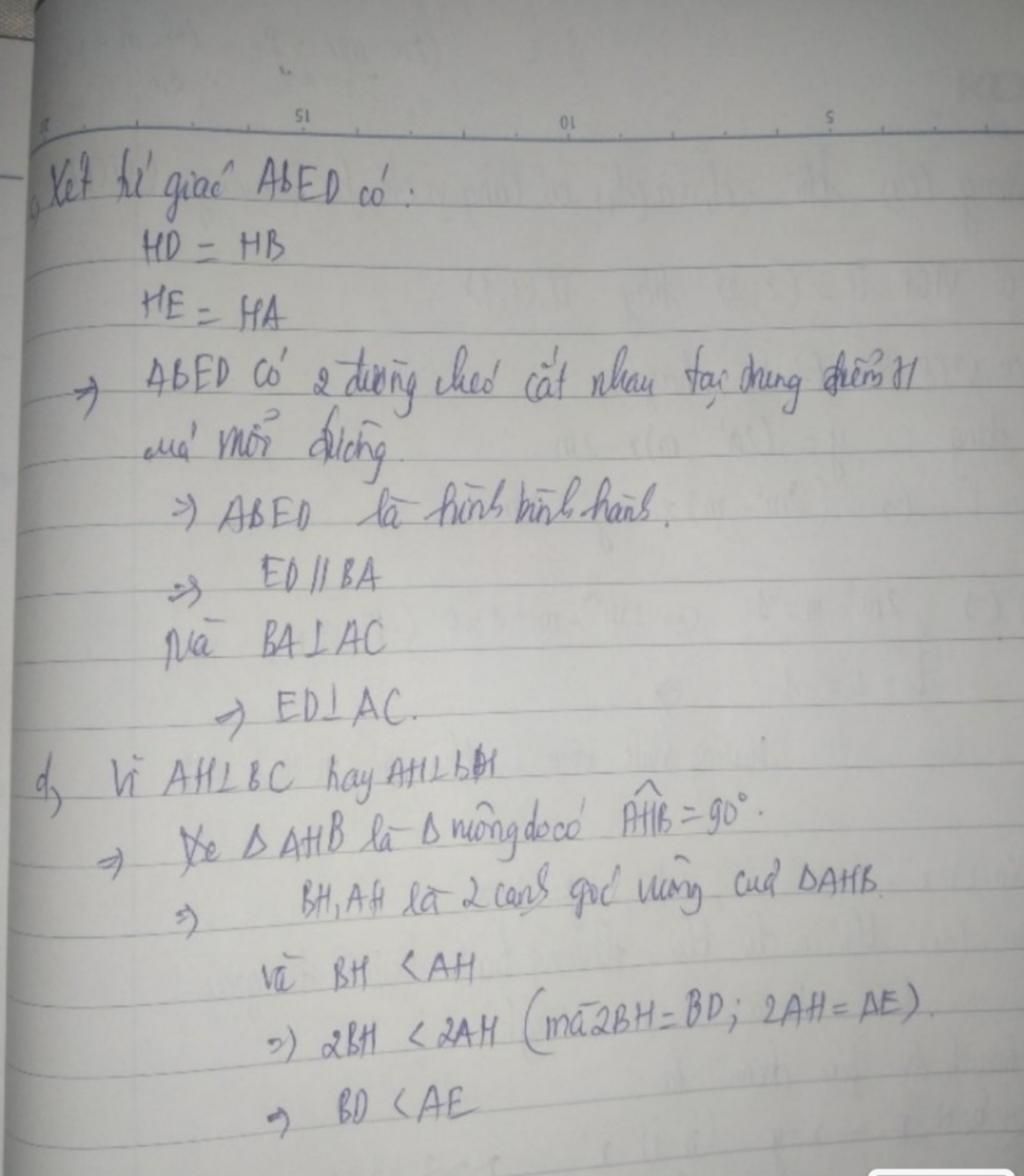 15 10 5
c, Xét tứ giác ABED có:
HD = HB
HE = HA
=> ABED có 2 đường chéo cắt nhau tại trung điểm H
của mỗi đường.
=> ABED là hình bình hành.
=> ED // BA
Mà BA ⊥ AC
=> ED ⊥ AC.
d, Vì AH ⊥ BC hay AH ⊥ BH
=> Xe Δ AHB là Δ vuông do có AHB = 90°.
=> BH, AH là 2 cạnh góc vuông của ΔAHB
và BH < AH
=> 2BH < 2AH (mà 2BH = BD; 2AH = AE).
=> BD < AE